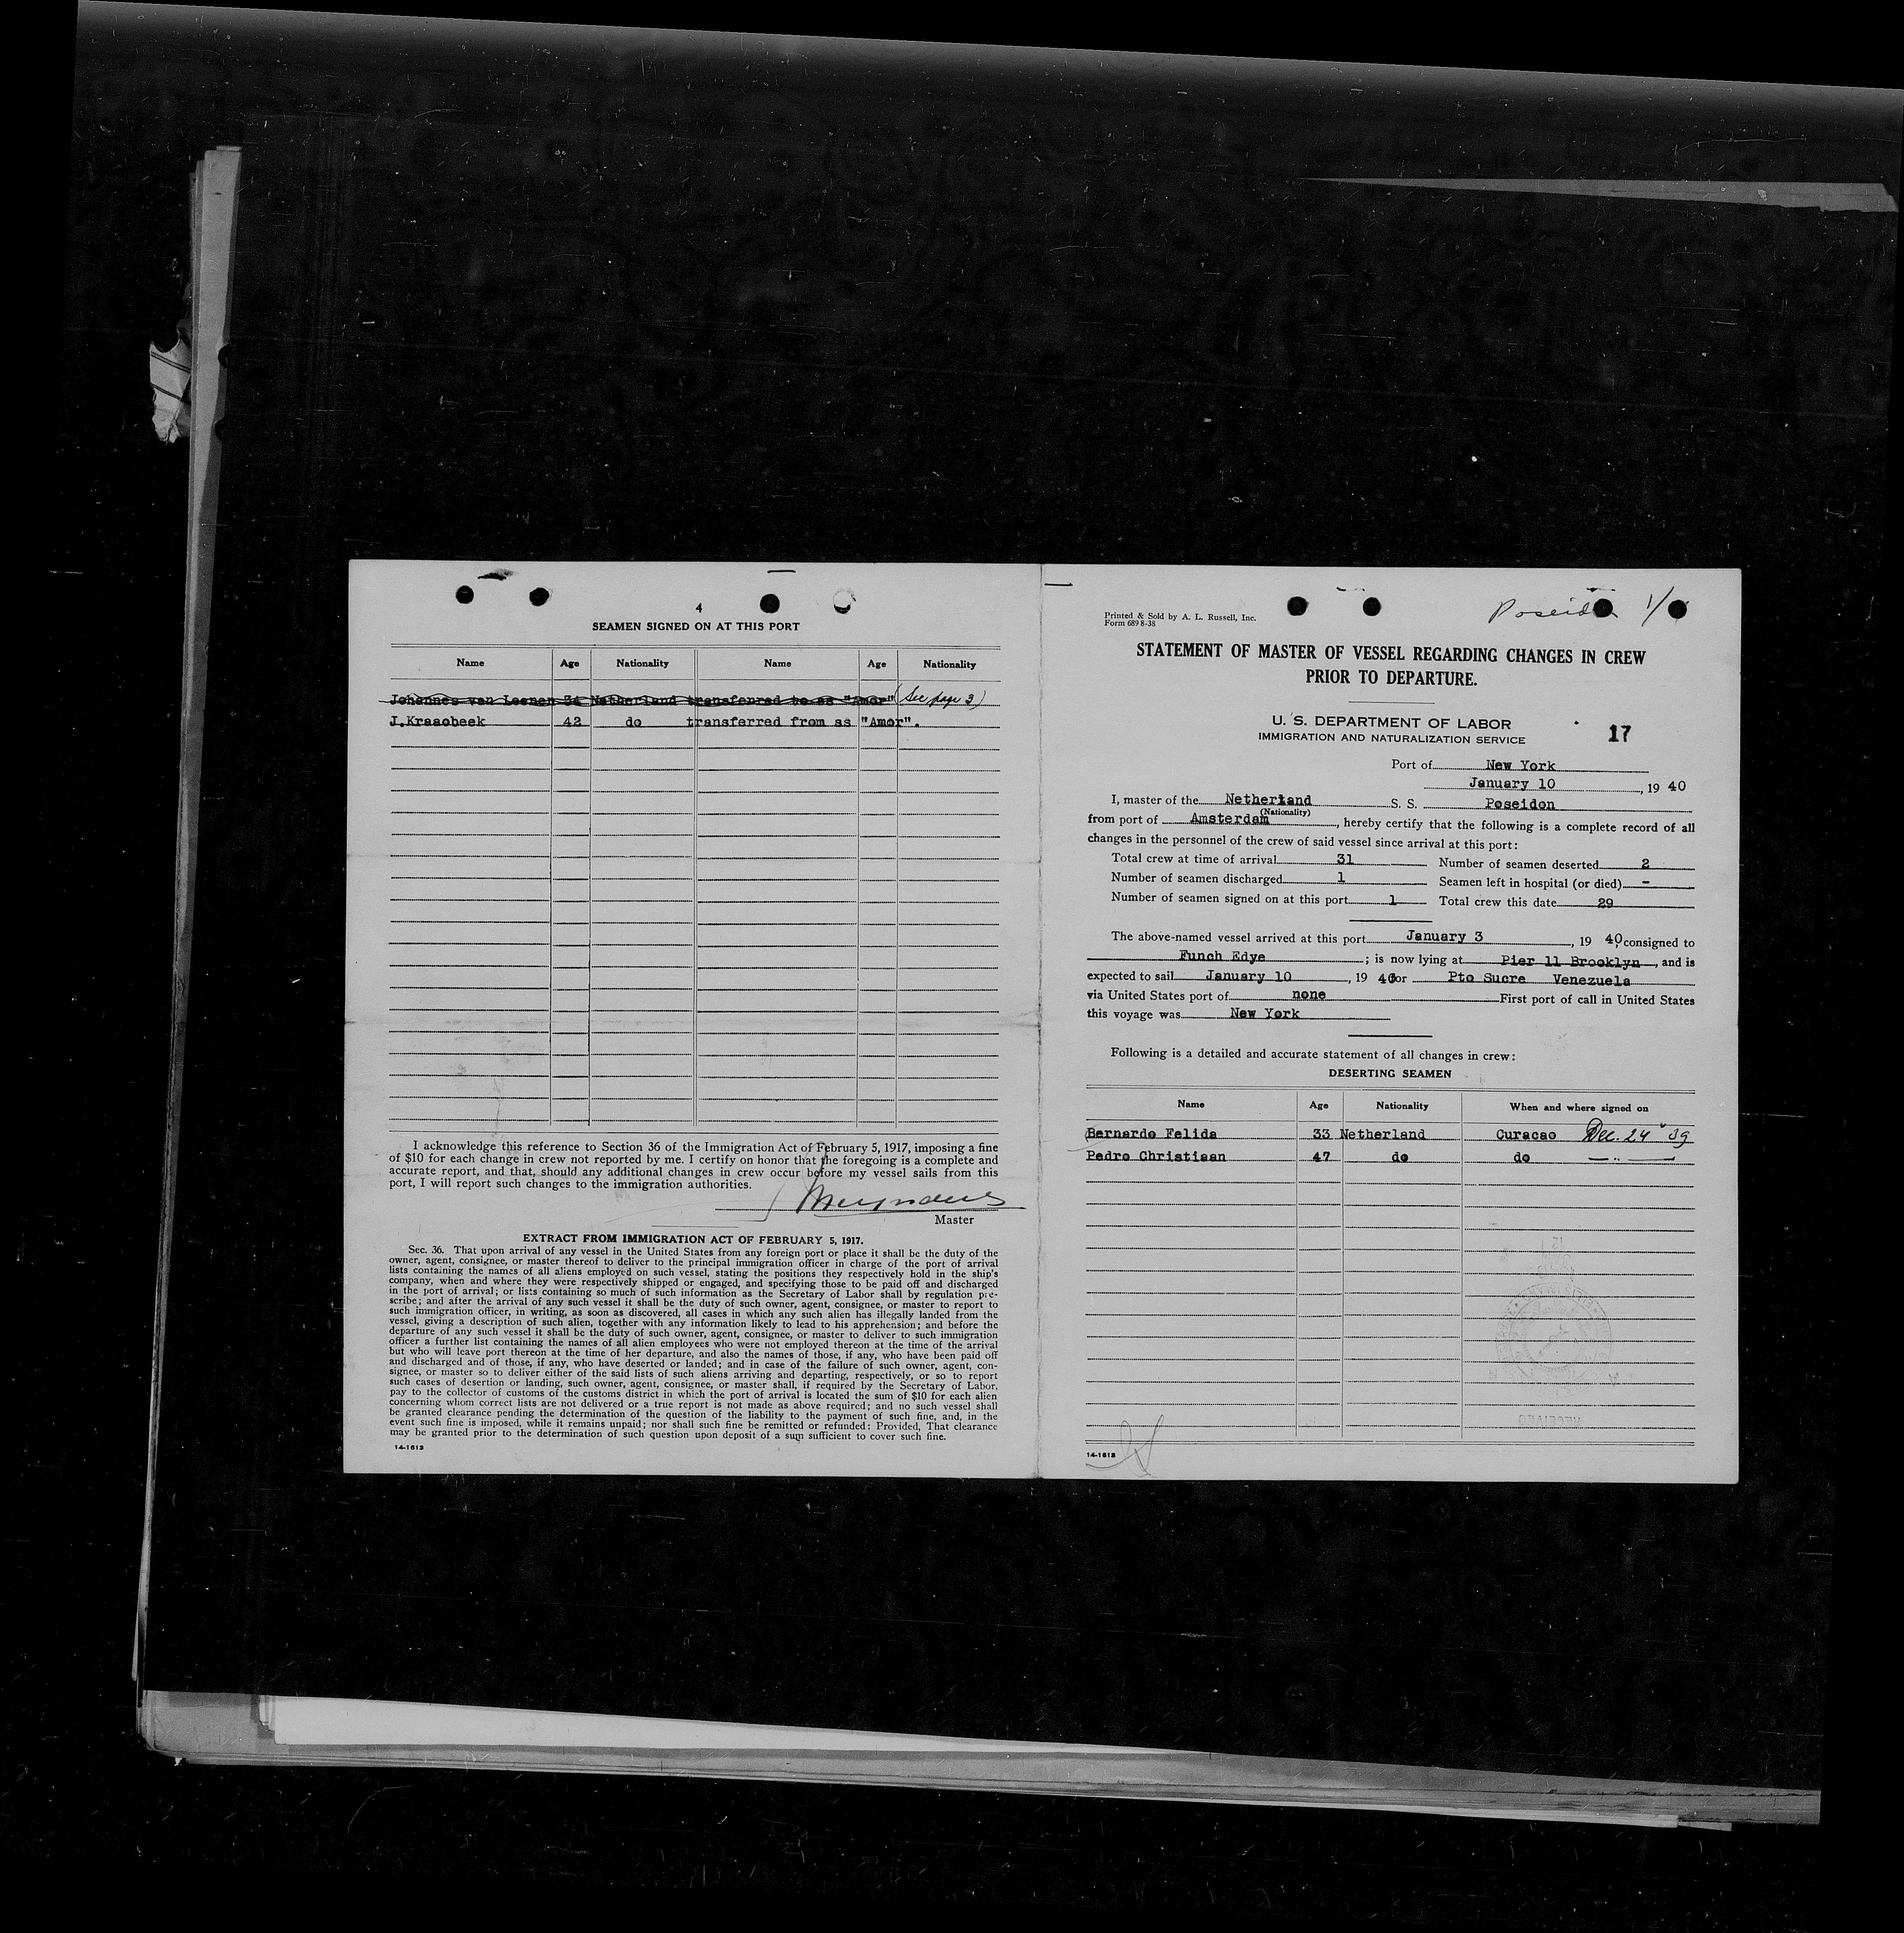 4
SEAMEN SIGNED ON AT THIS PORT
Name Age Nationality Name Age Nationality
Johannes van Leenen 34 Netherland transferred to ss "Amor" (See page 3)
J.Kraaobeek 42 do transferred from ss "Amor".
I acknowledge this reference to Section 36 of the Immigration Act of February 5, 1917, imposing a fine
of $10 for each change in crew not reported by me. I certify on honor that the foregoing is a complete and
accurate report, and that, should any additional changes in crew occur before my vessel sails from this
port, I will report such changes to the immigration authorities.
Master
EXTRACT FROM IMMIGRATION ACT OF FEBRUARY 5, 1917.
Sec. 36. That upon arrival of any vessel in the United States from any foreign port or place it shall be the duty of the
owner, agent, consignee, or master thereof to deliver to the principal immigration officer in charge of the port of arrival
lists containing the names of all aliens employed on such vessel, stating the positions they respectively hold in the ship's
company, when and where they were respectively shipped or engaged, and specifying those to be paid off and discharged
in the port of arrival; or lists containing so much of such information as the Secretary of Labor shall by regulation pre-
scribe; and after the arrival of any such vessel it shall be the duty of such owner, agent, consignee, or master to report to
such immigration officer, in writing, as soon as discovered, all cases in which any such alien has illegally landed from the
vessel, giving a description of such alien, together with any information likely to lead to his apprehension; and before the
departure of any such vessel it shall be the duty of such owner, agent, consignee, or master to deliver to such immigration
officer a further list containing the names of all alien employees who were not employed thereon at the time of the arrival
but who will leave port thereon at the time of her departure, and also the names of those, if any, who have been paid off
and discharged and of those, if any, who have deserted or landed; and in case of the failure of such owner, agent, con-
signee, or master so to deliver either of the said lists of such aliens arriving and departing, respectively, or so to report
such cases of desertion or landing, such owner, agent, consignee, or master shall, if required by the Secretary of Labor,
pay to the collector of customs of the customs district in which the port of arrival is located the sum of $10 for each alien
concerning whom correct lists are not delivered or a true report is not made as above required; and no such vessel shall
be granted clearance pending the determination of the question of the liability to the payment of such fine, and, in the
event such fine is imposed, while it remains unpaid; nor shall such fine be remitted or refunded: Provided, That clearance
may be granted prior to the determination of such question upon deposit of a sum sufficient to cover such fine.
14-1613
Printed & Sold by A. L. Russell, Inc.
Form 689 8-38
STATEMENT OF MASTER OF VESSEL REGARDING CHANGES IN CREW
PRIOR TO DEPARTURE.
U. S. DEPARTMENT OF LABOR
IMMIGRATION AND NATURALIZATION SERVICE
17
Port of New York
January 10, 19 40
I, master of the Netherland S. S. Poseidon
(Nationality)
from port of Amsterdam, hereby certify that the following is a complete record of all
changes in the personnel of the crew of said vessel since arrival at this port:
Total crew at time of arrival 31 Number of seamen deserted 2
Number of seamen discharged 1 Seamen left in hospital (or died) -
Number of seamen signed on at this port 1 Total crew this date 29
The above-named vessel arrived at this port January 3, 19 40, consigned to
Funch Edye; is now lying at Pier 11 Brooklyn, and is
expected to sail January 10, 19 40 for Pto Sucre Venezuela
via United States port of none First port of call in United States
this voyage was New York
Following is a detailed and accurate statement of all changes in crew:
DESERTING SEAMEN
Name Age Nationality When and where signed on
Bernardo Felida 33 Netherland Curacao Dec. 24 " 39
Pedro Christiaan 47 do do — " —
14-1613